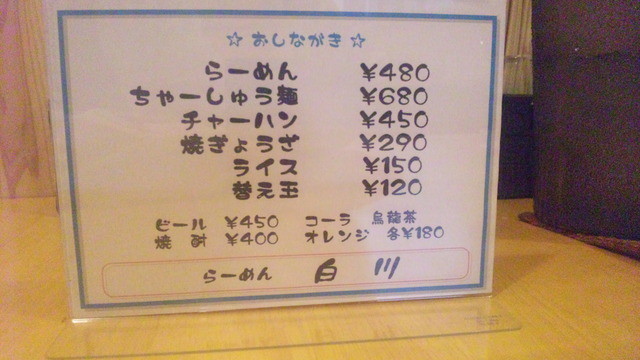 ☆ おしながき ☆
らーめん ¥480
ちゃーしゅう麺 ¥680
チャーハン ¥450
焼ぎょうざ ¥290
ライス ¥150
替え玉 ¥120
ビール ¥450 コーラ 烏龍茶
焼酎 ¥400 オレンジ 各¥180
らーめん 白川